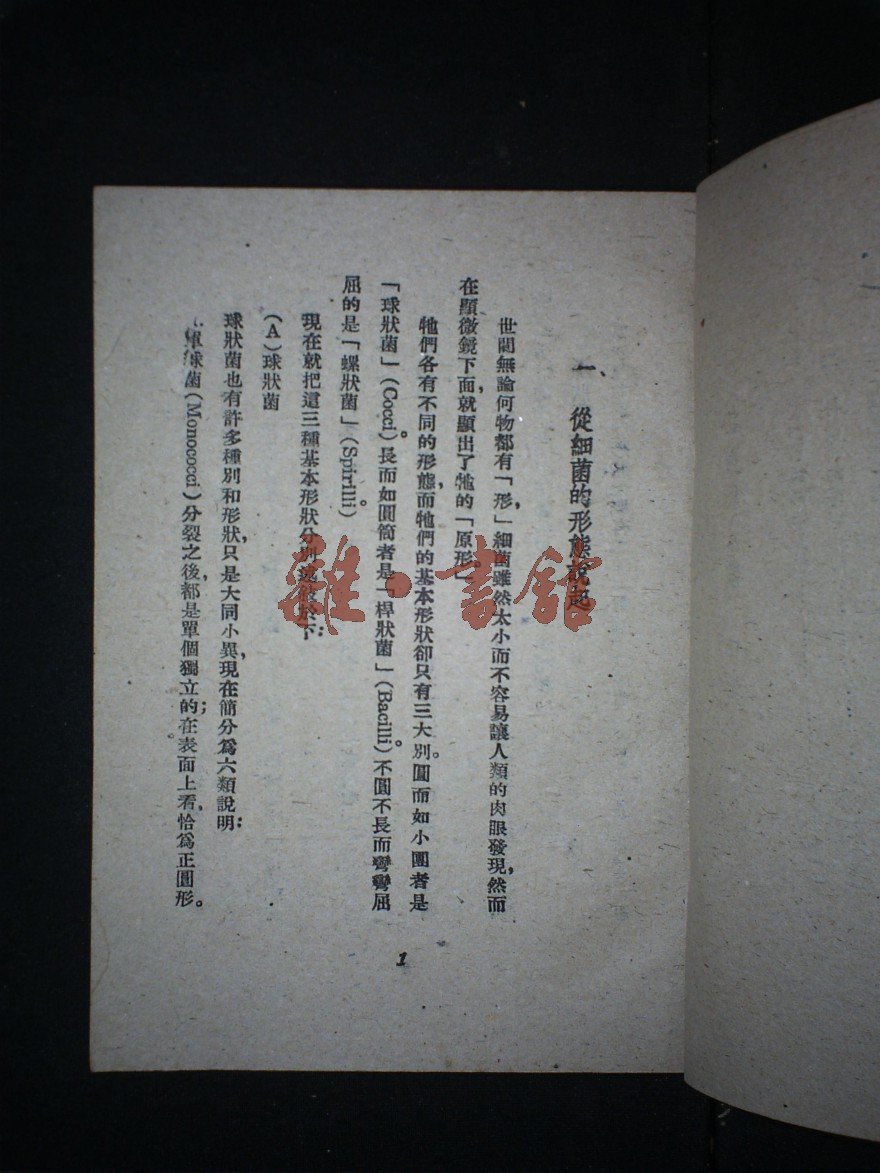 一、從細菌的形態說起
世間無論何物都有「形」，細菌雖然太小而不容易讓人類的肉眼發現，然而
在顯微鏡下面，就顯出了牠的「原形」。
牠們各有不同的形態，而牠們的基本形狀卻只有三大別。圓而如小團者是
「球狀菌」(Cocci)。長而如圓筒者是「桿狀菌」(Bacilli)。不圓不長而彎彎屈
屈的是「螺狀菌」(Spirilli)。
現在就把這三種基本形狀分別述敍於下：
(A)球狀菌
球狀菌也有許多種別和形狀，只是大同小異，現在簡分爲六類說明：
單球菌(Monococci)分裂之後，都是單個獨立的；在表面上看，恰爲正圓形。
1
雜·書館